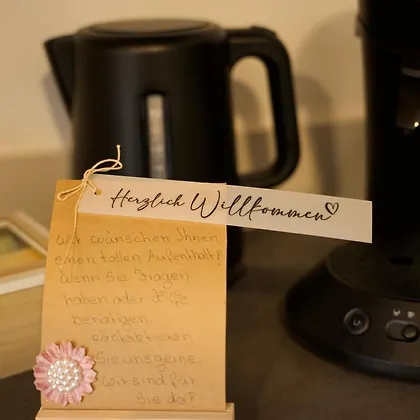 Herzlich Willkommen
Wir wünschen Ihnen
einen tollen Aufenthalt!
Wenn Sie Fragen
haben oder Hilfe
benötigen
kontaktieren
Sie uns gerne
wir sind für
Sie da!